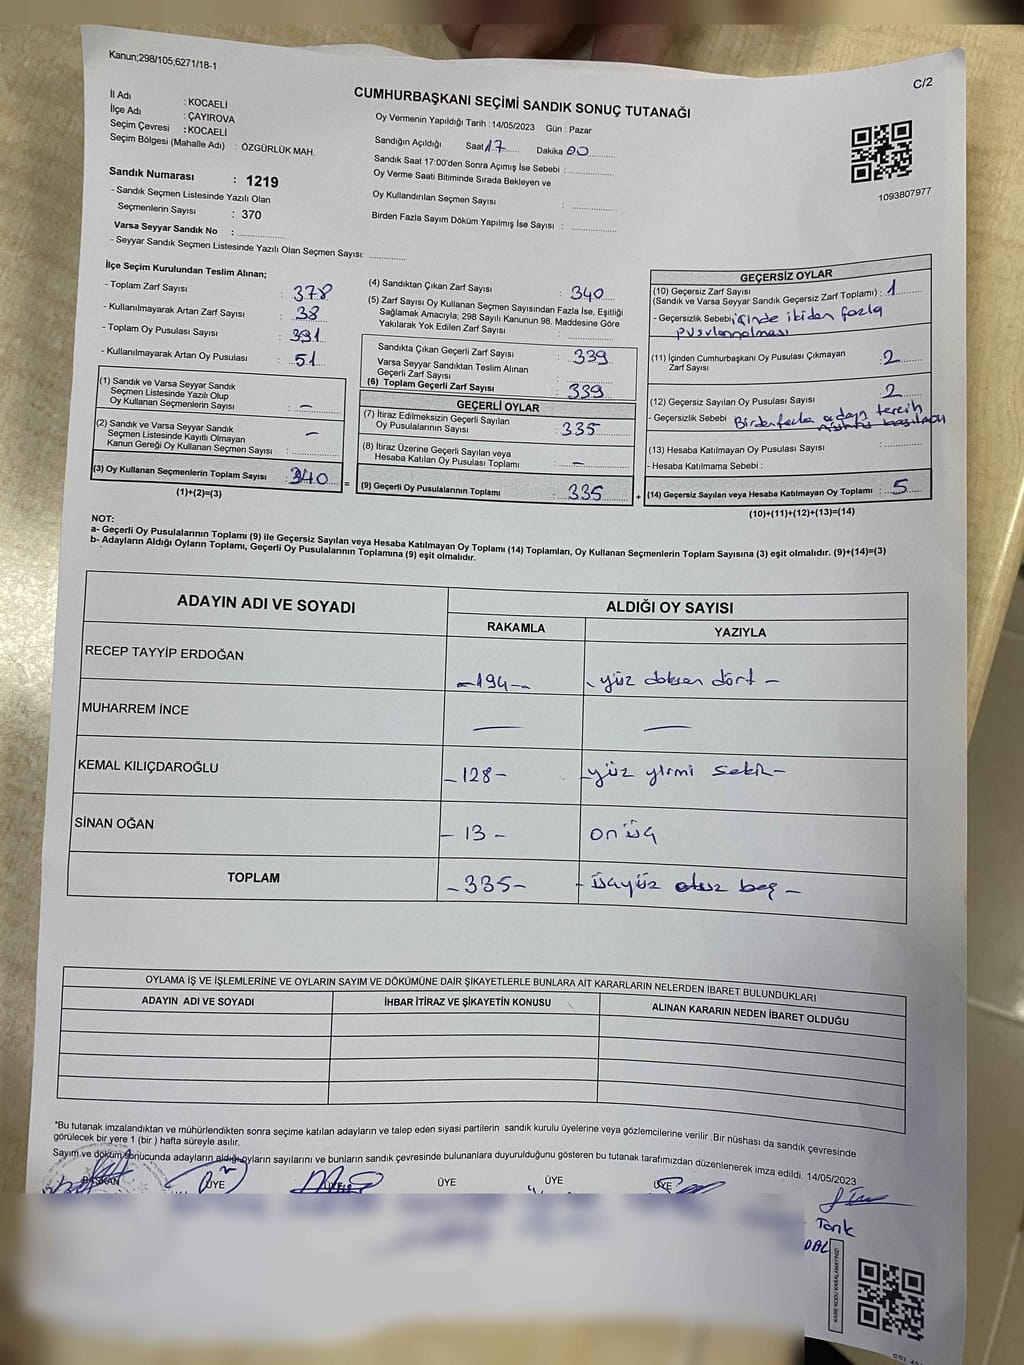 Kanun;298/105;6271/18-1
C/2
CUMHURBAŞKANI SEÇİMİ SANDIK SONUÇ TUTANAĞI
İl Adı : KOCAELİ
İlçe Adı : ÇAYIROVA
Seçim Çevresi : KOCAELİ
Seçim Bölgesi (Mahalle Adı) : ÖZGÜRLÜK MAH.
Sandık Numarası : 1219
- Sandık Seçmen Listesinde Yazılı Olan
Seçmenlerin Sayısı : 370
Varsa Seyyar Sandık No :
- Seyyar Sandık Seçmen Listesinde Yazılı Olan Seçmen Sayısı:
Oy Vermenin Yapıldığı Tarih : 14/05/2023 Gün : Pazar
Sandığın Açıldığı Saat 17 Dakika 00
Sandık Saat 17:00'den Sonra Açımış İse Sebebi :
Oy Verme Saati Bitiminde Sırada Bekleyen ve
Oy Kullandırılan Seçmen Sayısı :
Birden Fazla Sayım Döküm Yapılmış İse Sayısı :
1093807977
İlçe Seçim Kurulundan Teslim Alınan;
- Toplam Zarf Sayısı : 378
- Kullanılmayarak Artan Zarf Sayısı : 38
- Toplam Oy Pusulası Sayısı : 391
- Kullanılmayarak Artan Oy Pusulası : 51
(1) Sandık ve Varsa Seyyar Sandık
Seçmen Listesinde Yazılı Olup
Oy Kullanan Seçmenlerin Sayısı : –
(2) Sandık ve Varsa Seyyar Sandık
Seçmen Listesinde Kayıtlı Olmayan
Kanun Gereği Oy Kullanan Seçmen Sayısı : –
(3) Oy Kullanan Seçmenlerin Toplam Sayısı : 340 =
(1)+(2)=(3)
(4) Sandıktan Çıkan Zarf Sayısı : 340
(5) Zarf Sayısı Oy Kullanan Seçmen Sayısından Fazla İse, Eşitliği
Sağlamak Amacıyla; 298 Sayılı Kanunun 98. Maddesine Göre
Yakılarak Yok Edilen Zarf Sayısı :
Sandıkta Çıkan Geçerli Zarf Sayısı : 339
Varsa Seyyar Sandıktan Teslim Alınan
Geçerli Zarf Sayısı :
(6) Toplam Geçerli Zarf Sayısı : 339
GEÇERLİ OYLAR
(7) İtiraz Edilmeksizin Geçerli Sayılan
Oy Pusulalarının Sayısı : 335
(8) İtiraz Üzerine Geçerli Sayılan veya
Hesaba Katılan Oy Pusulası Toplamı : –
(9) Geçerli Oy Pusulalarının Toplamı : 335 +
GEÇERSİZ OYLAR
(10) Geçersiz Zarf Sayısı
(Sandık ve Varsa Seyyar Sandık Geçersiz Zarf Toplamı) : 1
- Geçersizlik Sebebi : içinde ikiden fazla
pusula olması
(11) İçinden Cumhurbaşkanı Oy Pusulası Çıkmayan
Zarf Sayısı : 2
(12) Geçersiz Sayılan Oy Pusulası Sayısı : 2
- Geçersizlik Sebebi Birden fazla adayı tercih
(13) Hesaba Katılmayan Oy Pusulası Sayısı :
- Hesaba Katılmama Sebebi :
(14) Geçersiz Sayılan veya Hesaba Katılmayan Oy Toplamı : 5
(10)+(11)+(12)+(13)=(14)
NOT:
a- Geçerli Oy Pusulalarının Toplamı (9) ile Geçersiz Sayılan veya Hesaba Katılmayan Oy Toplamı (14) Toplamları, Oy Kullanan Seçmenlerin Toplam Sayısına (3) eşit olmalıdır. (9)+(14)=(3)
b- Adayların Aldığı Oyların Toplamı, Geçerli Oy Pusulalarının Toplamına (9) eşit olmalıdır.
ADAYIN ADI VE SOYADI ALDIĞI OY SAYISI
RAKAMLA YAZIYLA
RECEP TAYYİP ERDOĞAN –194– – yüz doksan dört –
MUHARREM İNCE — —
KEMAL KILIÇDAROĞLU –128– –yüz yirmi sekiz–
SİNAN OĞAN – 13 – on üç
TOPLAM –335– – üçyüz otuz beş –
OYLAMA İŞ VE İŞLEMLERİNE VE OYLARIN SAYIM VE DÖKÜMÜNE DAİR ŞİKAYETLERLE BUNLARA AİT KARARLARIN NELERDEN İBARET BULUNDUKLARI
ADAYIN ADI VE SOYADI İHBAR İTİRAZ VE ŞİKAYETİN KONUSU ALINAN KARARIN NEDEN İBARET OLDUĞU
*Bu tutanak imzalandıktan ve mühürlendikten sonra seçime katılan adayların ve talep eden siyasi partilerin sandık kurulu üyelerine veya gözlemcilerine verilir .Bir nüshası da sandık çevresinde
görülecek bir yere 1 (bir ) hafta süreyle asılır.
Sayım ve döküm sonucunda adayların aldığı oyların sayılarını ve bunların sandık çevresinde bulunanlara duyurulduğunu gösteren bu tutanak tarafımızdan düzenlenerek imza edildi. 14/05/2023
BAŞKAN ÜYE ÜYE ÜYE ÜYE ÜYE
Tarık
DAL
KARE KODU KARALAMAYINIZ!